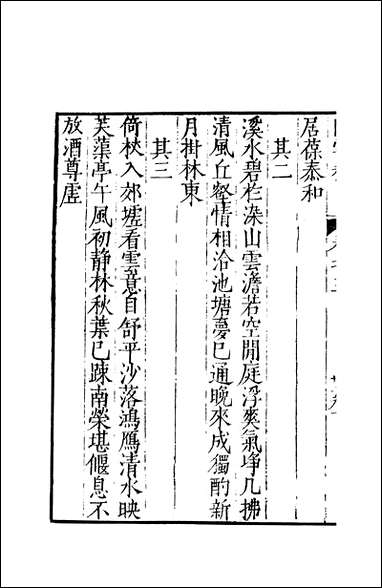 居葆泰和
其二
溪水碧於染山雲澹若空閒庭浮爽氣埩几拂
清風丘壑情相洽池塘夢已通晚來成獨酌新
月掛林東
其三
倚杖入郊墟看雲意自舒平沙落鴻鴈清水映
芙蕖亭午風初静林秋葉已踈南榮堪偃息不
放酒尊虛